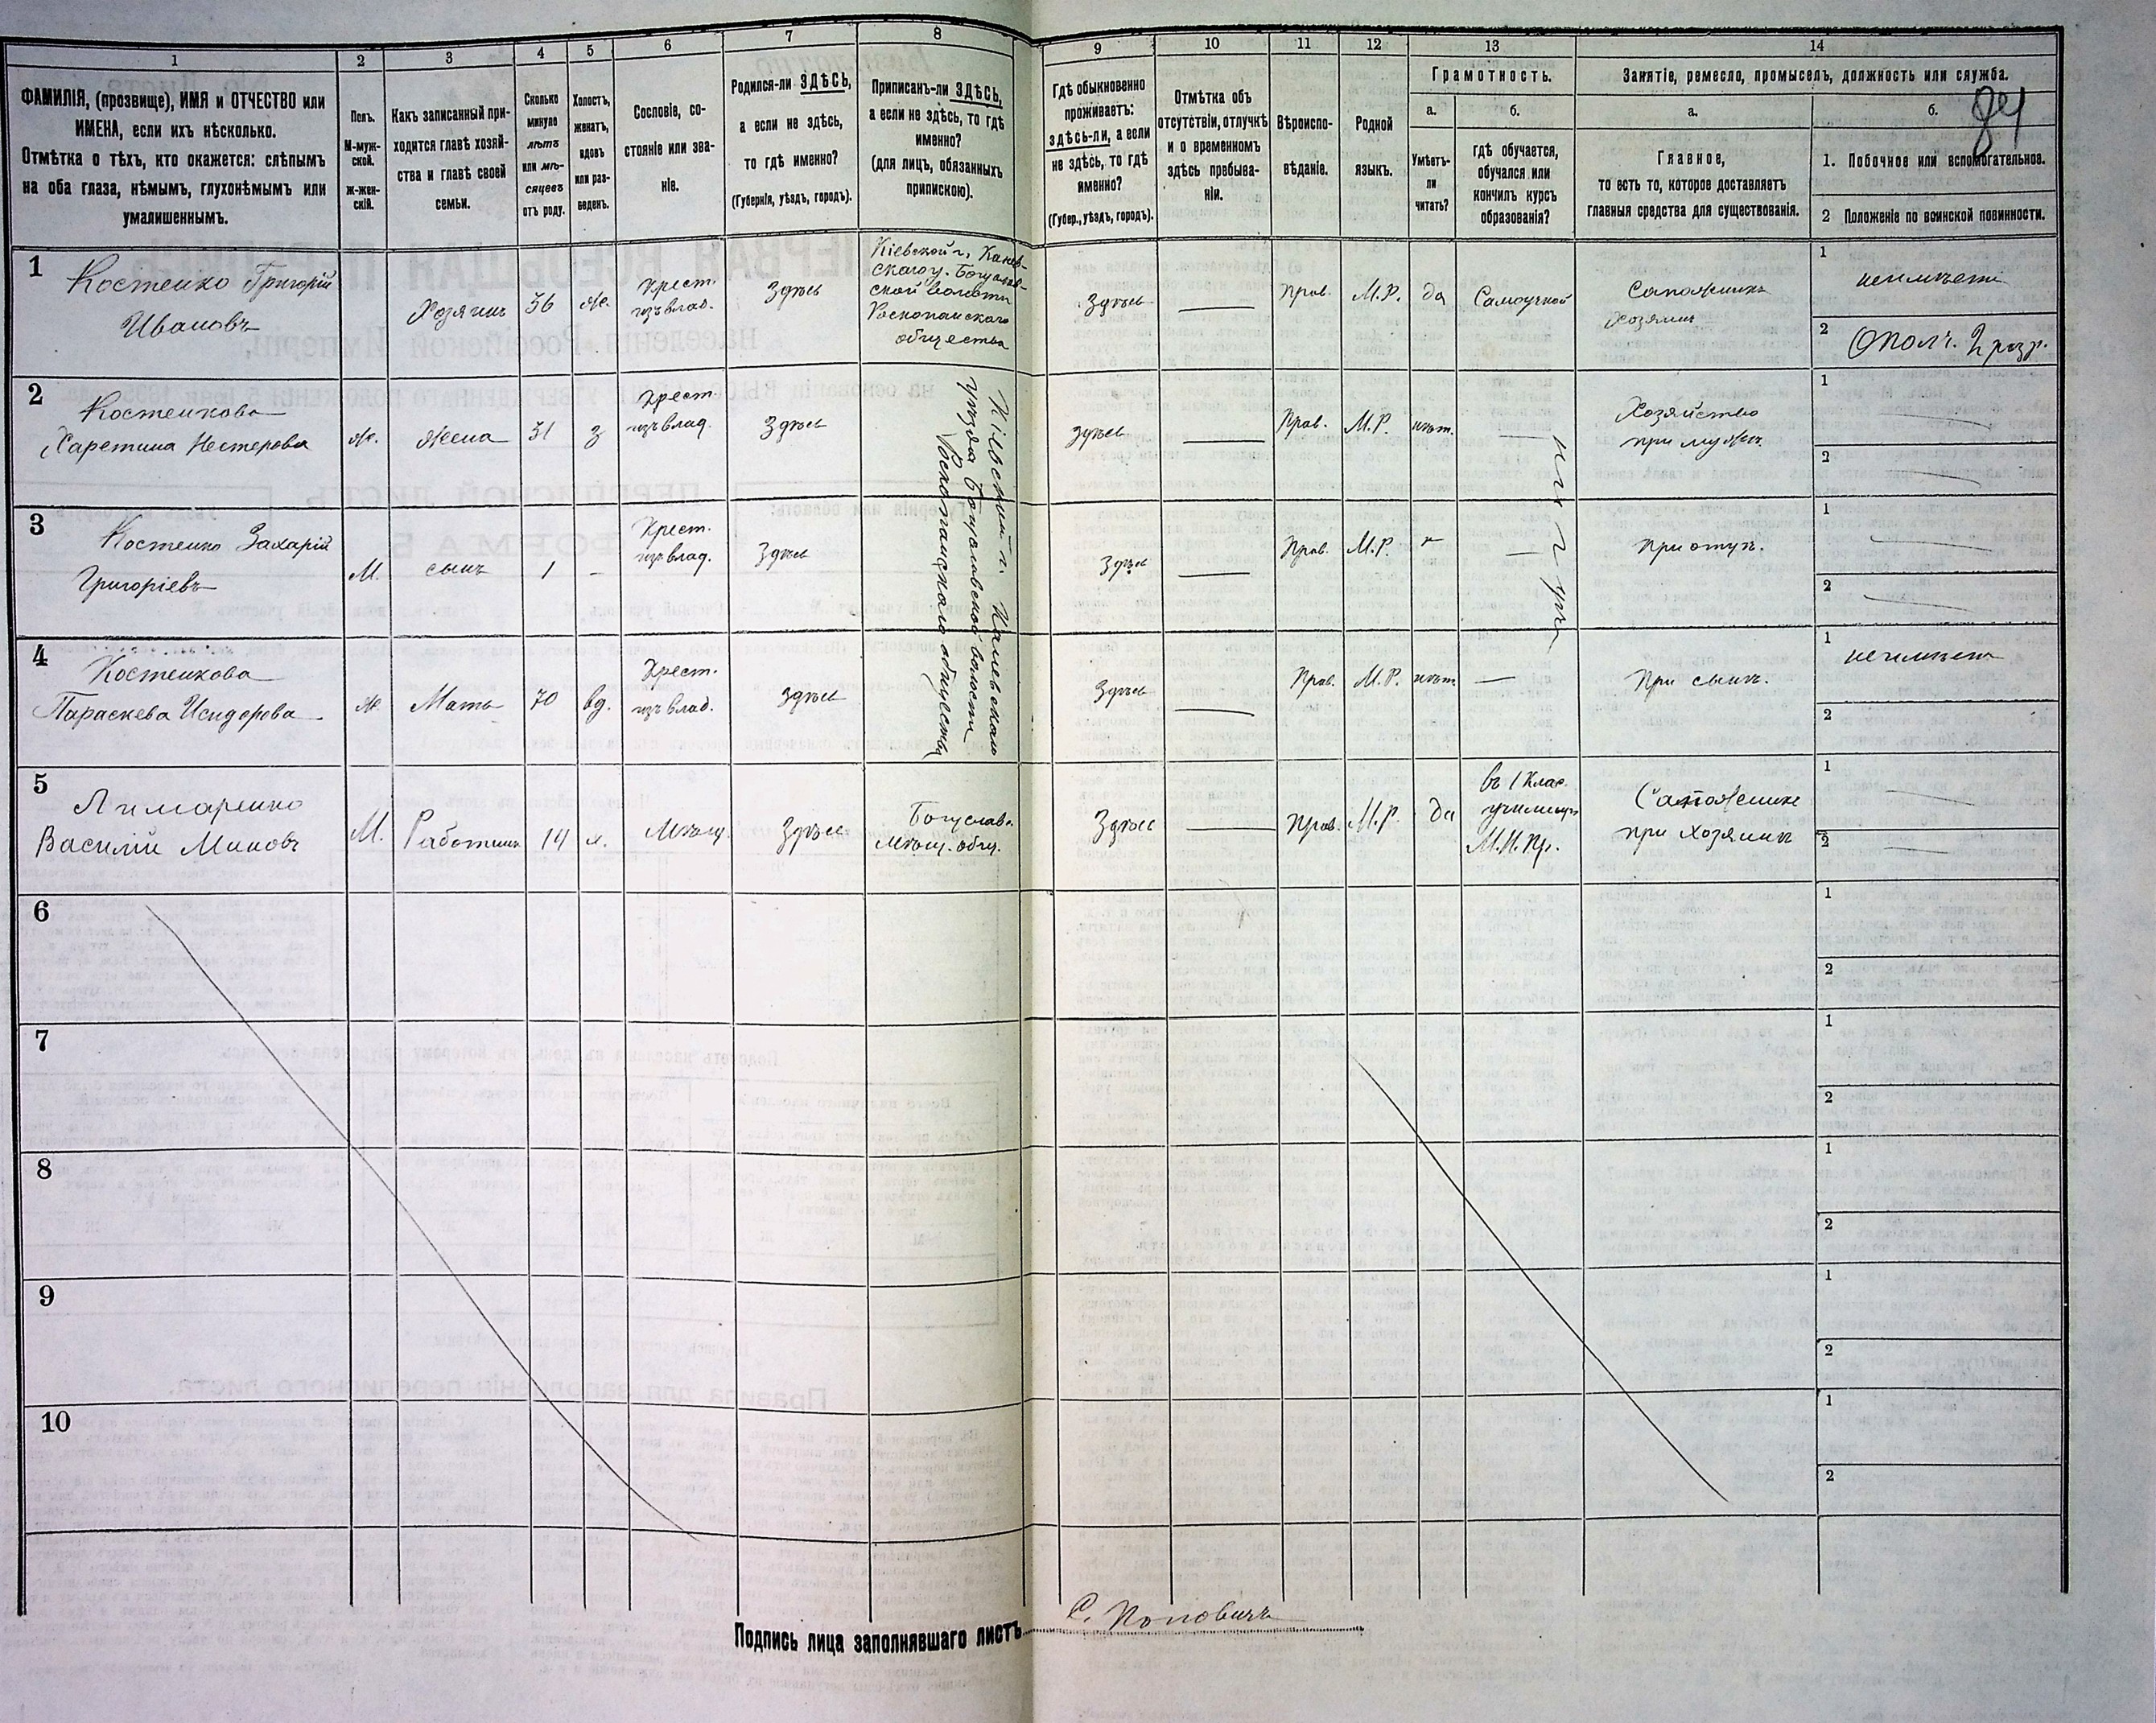 1
2
3
4
5
6
7
8
9
10
11
12
13
14
ФАМИЛІЯ, (прозвище), ИМЯ и ОТЧЕСТВО или
ИМЕНА, если ихъ нѣсколько.
Отмѣтка о тѣхъ, кто окажется: слѣпымъ
на оба глаза, нѣмымъ, глухонѣмымъ или
умалишеннымъ.
Полъ.
М-муж-
ской.
ж-жен-
скій.
Какъ записанный при-
ходится главѣ хозяй-
ства и главѣ своей
семьи.
Сколько
минуло
лѣтъ
или мѣ-
сяцевъ
отъ роду.
Холостъ,
женатъ,
вдовъ
или раз-
веденъ.
Сословіе, со-
стояніе или зва-
ніе.
Родился-ли ЗДѢСЬ,
а если не здѣсь,
то гдѣ именно?
(Губернія, уѣздъ, городъ).
Приписанъ-ли ЗДѢСЬ,
а если не здѣсь, то гдѣ
именно?
(для лицъ, обязанныхъ
припискою).
Гдѣ обыкновенно
проживаетъ:
здѣсь-ли, а если
не здѣсь, то гдѣ
именно?
(Губер., уѣздъ, городъ).
Отмѣтка объ
отсутствіи, отлучкѣ
и о временномъ
здѣсь пребыва-
ніи.
Вѣроиспо-
вѣданіе.
Родной
языкъ.
Грамотность.
а.
Умѣетъ-
ли
читать?
б.
гдѣ обучается,
обучался или
кончилъ курсъ
образованія?
Занятіе, ремесло, промыселъ, должность или служба.
а.
Главное,
то есть то, которое доставляетъ
главныя средства для существованія.
б.
84
1. Побочное или вспомогательное.
2 Положеніе по воинской повинности.
1
Костенко Григорій
Ивановъ
Хозяинъ
36
ж.
Крест.
изъ влад.
Здѣсь
Кіевской г. Канев-
скаго у. Богуслав-
ской волости
Роскопанскаго
общества
Здѣсь
Прав.
М.Р.
да
Самоучкой
Сапожникъ
Хозяинъ
1
неимѣетъ
2
Ополч. 2 разр.
2
Костенкова
Харетина Нестерова
ж.
жена
31
з
Крест.
изъ влад.
Здѣсь
Кіевской г. Каневскаго
уѣзда Богуславской волости
Роскопанскаго общества
здѣсь
Прав.
М.Р.
нѣт.
Хозяйство
при мужѣ
1
2
3
Костенко Захарій
Григоріевъ
М.
сынъ
1
Крест.
изъ влад.
Здѣсь
Здѣсь
Прав.
М.Р.
При отцѣ.
1
2
4
Костенкова
Параскева Исидорова
ж
Мать
70
вд.
Крест.
изъ влад.
Здѣсь
Здѣсь
Прав.
М.Р.
нѣт
При сынѣ.
1
неимѣетъ
2
5
Лимаренко
Василій Миновъ
М.
Работникъ
14
х.
Мѣщ.
Здѣсь
Богуслав.
мѣщ. общ.
Здѣсь
Прав.
М.Р.
да
въ 1 Клас.
училищѣ
М.Н.Пр.
Сапожникъ
при хозяинѣ
1
2
6
1
2
7
1
2
8
1
2
9
1
2
10
1
2
Подпись лица заполнявшаго листъ
С. Поповичъ